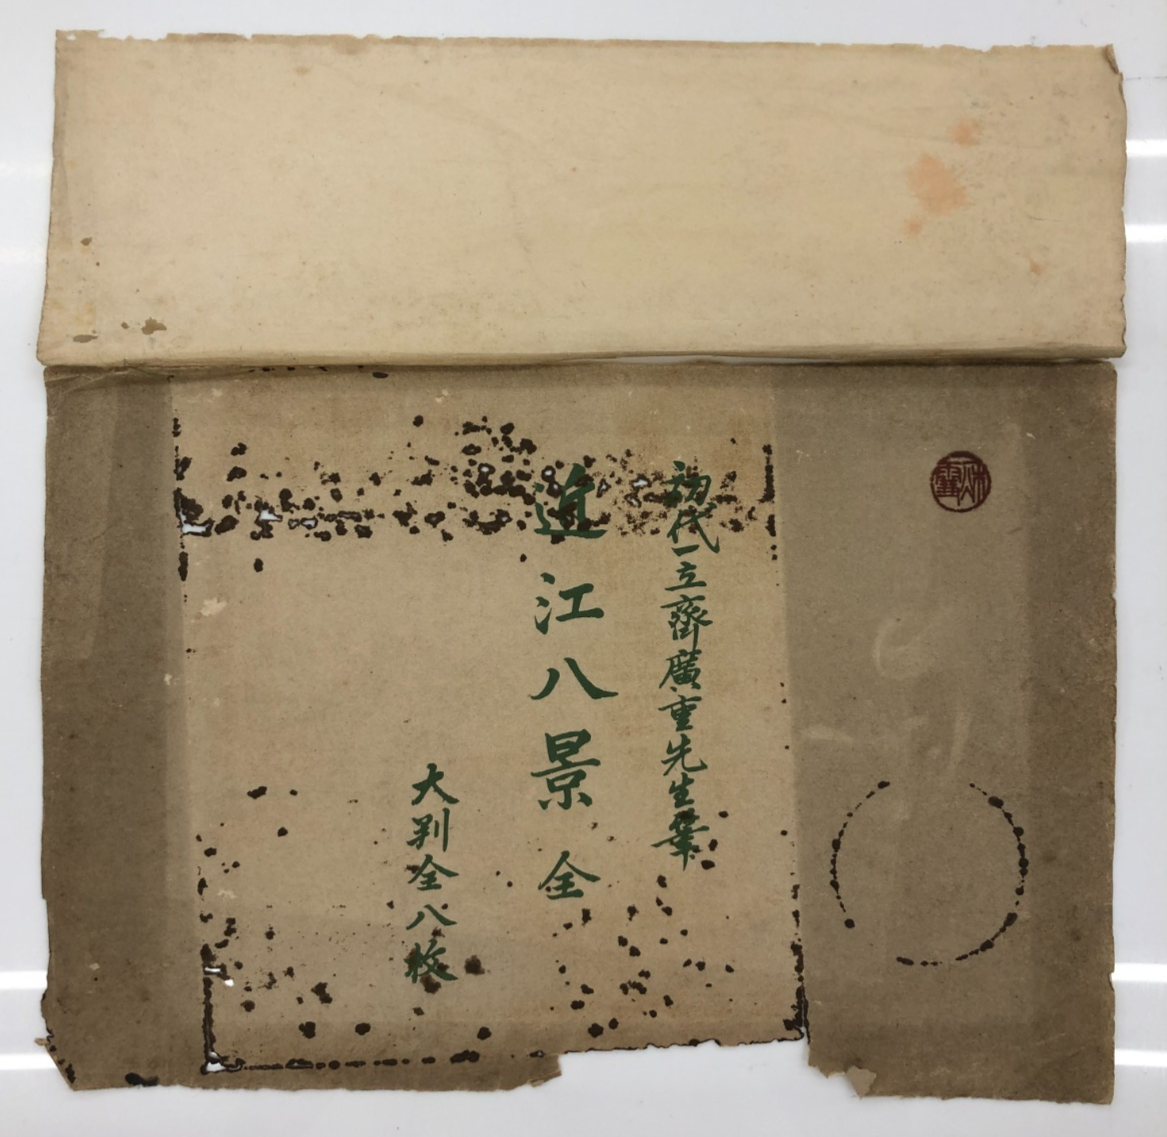 初代一立齋廣重先生筆
近江八景 全
大判全八枚